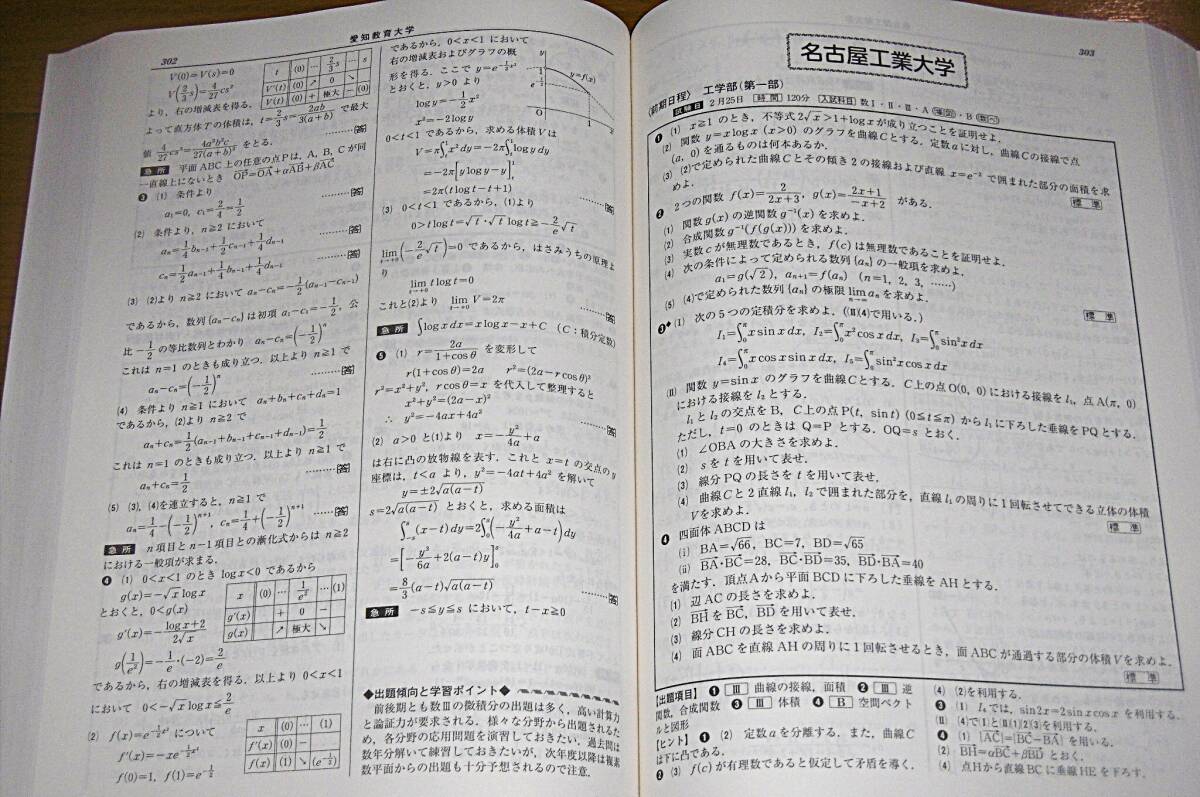 302
愛知教育大学
V(0)=V(s)=0
V(2/3 s)=4/27 cs²
t (0) … 2/3 s … s
V'(t) (0) ↗ 0 ↘
V(t) (0) + 極大 − (0)
より，右の増減表を得る．
よって直方体Tの体積は，t=2/3 s=2ab/3(a+b) で最大
値 4/27 cs²=4a²b²c/27(a+b)² をとる． ………(答)
急所 平面 ABC 上の任意の点Pは，A，B，C が同
一直線上にないとき OP=OA+αAB+βAC
❸ (1) 条件より
a₁=0, c₁=2/4=1/2 ………(答)
(2) 条件より，n≧2 において
aₙ=1/4 bₙ₋₁+1/2 cₙ₋₁+1/4 dₙ₋₁ ………(答)
cₙ=1/2 aₙ₋₁+1/4 bₙ₋₁+1/4 dₙ₋₁ ………(答)
(3) (2)より n≧2 において aₙ−cₙ=−1/2(aₙ₋₁−cₙ₋₁)
であるから，数列{aₙ−cₙ}は初項 a₁−c₁=−1/2，公
比 −1/2 の等比数列とわかり aₙ−cₙ=(−1/2)ⁿ
これは n=1 のときも成り立つ．以上より n≧1 で
aₙ−cₙ=(−1/2)ⁿ ………(答)
(4) 条件より n≧1 において aₙ+bₙ+cₙ+dₙ=1
であるから，(2)より n≧2 で
aₙ+cₙ=1/2(aₙ₋₁+bₙ₋₁+cₙ₋₁+dₙ₋₁)=1/2
これは n=1 のときも成り立つ．以上より n≧1 で
aₙ+cₙ=1/2 ………(答)
(5) (3)，(4)を連立すると，n≧1 で
aₙ=1/4−(−1/2)ⁿ⁺¹, cₙ=1/4+(−1/2)ⁿ⁺¹ ……(答)
急所 n項目と n−1項目との漸化式からは n≧2
における一般項が求まる．
❹ (1) 0<x<1 のとき log x<0 であるから
g(x)=−√x log x
とおくと，0<g(x)
g'(x)=−(log x+2)/2√x
x (0) … 1/e² … (1)
g'(x) + 0 −
g(x) ↗ 極大 ↘
g(1/e²)=−1/e・(−2)=2/e
であるから，右の増減表を得る．以上より 0<x<1
において 0<−√x log x≦2/e
(2) f(x)=e^(−1/2 x²) について
f'(x)=−xe^(−1/2 x²)
f(0)=1, f(1)=e^(−1/2)
x (0) … (1)
f'(x) (0) −
f(x) (1) ↘ (e^(−1/2))
であるから，0<x<1 において
右の増減表およびグラフの概
形を得る．ここで y=e^(−1/2 x²)
とおくと，y>0 より
log y=−1/2 x²
x²=−2log y
y
1
e^(−1/2)
y=f(x)
O
1
x
0<t<1 であるから，求める体積 V は
V=π∫ₜ¹x²dy=−2π∫ₜ¹log y dy
=−2π[y log y−y]ₜ¹
=2π(t log t−t+1) ………(答)
(3) 0<t<1 であるから，(1)より
0>t log t=√t・√t log t≧−2/e √t
lim t→+0 (−2/e √t)=0 であるから，はさみうちの原理よ
り
lim t→+0 t log t=0
これと(2)より lim t→+0 V=2π ………(答)
急所 ∫log x dx=x log x−x+C （C：積分定数）
❺ (1) r=2a/(1+cosθ) を変形して
r(1+cosθ)=2a r²=(2a−r cosθ)²
r²=x²+y²，r cosθ=x を代入して整理すると
x²+y²=(2a−x)²
∴ y²=−4ax+4a² ………(答)
(2) a>0 と(1)より x=−y²/4a+a
は右に凸の放物線を表す．これと x=t の交点の y
座標は，t<a より，y²=−4at+4a² を解いて
y=±2√a(a−t)
s=2√a(a−t) とおくと，求める面積は
∫₋ₛˢ(x−t)dy=2∫₀ˢ(−y²/4a+a−t)dy
=[−y³/6a+2(a−t)y]₀ˢ
=8/3(a−t)√a(a−t) ………(答)
急所 −s≦y≦s において，t−x≧0
◆出題傾向と学習ポイント◆
前後期とも数Ⅲの微積分の出題は多く，高い計算力
と論証力が要求される．様々な分野から出題されるた
め，各分野の応用問題を演習しておきたい．過去問は
数年分解いて練習しておきたいが，次年度以降は複素
数平面からの出題も十分予想されるので注意．
303
名古屋工業大学
〈前期日程〉 工学部（第一部）
試験日 2月25日 時間 120分 入試科目 数Ⅰ・Ⅱ・Ⅲ・A・B
❶ (1) x≧1 のとき，不等式 2√x>1+log x が成り立つことを証明せよ．
(2) 関数 y=x log x (x>0) のグラフを曲線Cとする．定数 a に対し，曲線Cの接線で点
(a, 0) を通るものは何本あるか．
(3) (2)で定められた曲線Cとその傾き2の接線および直線 x=e⁻² で囲まれた部分の面積を求
めよ． 標準
❷ 2つの関数 f(x)=2/(2x+3)，g(x)=(2x+1)/(−x+2) がある．
(1) 関数 g(x) の逆関数 g⁻¹(x) を求めよ．
(2) 合成関数 g⁻¹(f(g(x))) を求めよ．
(3) 実数 c が無理数であるとき，f(c) は無理数であることを証明せよ．
(4) 次の条件によって定められる数列 {aₙ} の一般項を求めよ．
a₁=g(√2)，aₙ₊₁=f(aₙ) (n=1, 2, 3, ……)
(5) (4)で定められた数列 {aₙ} の極限 lim n→∞ aₙ を求めよ． 標準
❸◆(Ⅰ) 次の5つの定積分を求めよ．((Ⅱ)(4)で用いる.)
I₁=∫₀^π x sin x dx, I₂=∫₀^π x² cos x dx, I₃=∫₀^π sin²x dx
I₄=∫₀^π x cos x sin x dx, I₅=∫₀^π sin²x cos x dx
(Ⅱ) 関数 y=sin x のグラフを曲線Cとする．C上の点 O(0, 0) における接線を l₁，点 A(π, 0)
における接線を l₂ とする．
l₁ と l₂ の交点をB，C上の点 P(t, sin t) (0≦t≦π) から l₁ に下ろした垂線を PQ とする．
ただし，t=0 のときは Q=P とする．OQ=s とおく．
(1) ∠OBA の大きさを求めよ．
(2) s を t を用いて表せ．
(3) 線分 PQ の長さを t を用いて表せ．
(4) 曲線Cと2直線 l₁，l₂ で囲まれた部分を，直線 l₁ の周りに1回転させてできる立体の体積
Vを求めよ． 標準
❹ 四面体 ABCD は
(ⅰ) BA=√66，BC=7，BD=√65
(ⅱ) BA・BC=28，BC・BD=35，BD・BA=40
を満たす．頂点Aから平面 BCD に下ろした垂線を AH とする．
(1) 辺 AC の長さを求めよ．
(2) BH を BC，BD を用いて表せ．
(3) 線分 CH の長さを求めよ．
(4) 面 ABC を直線 AH の周りに1回転させるとき，面 ABC が通過する部分の体積 V を求めよ．
標準
【出題項目】 ❶ Ⅲ 曲線の接線，面積 ❷ Ⅲ 逆
関数，合成関数 ❸ Ⅲ 体積 ❹ B 空間ベクト
ルと図形
【ヒント】 ❶ (2) 定数 a を分離する．また，曲線C
は下に凸である．
❷ (3) f(c) が有理数であると仮定して矛盾を導く．
(4) (2)を利用する．
❸ (Ⅰ) I₄ では，sin2x=2sin x cos x を利用．
(Ⅱ) (4)で(Ⅰ)と(Ⅱ)(1)(2)(3)を利用する．
❹ (1) |AC|=|BC−BA| を用いる．
(2) BH=αBC+βBD とおく．
(4) 点Hから直線BCに垂線HEを下ろす．